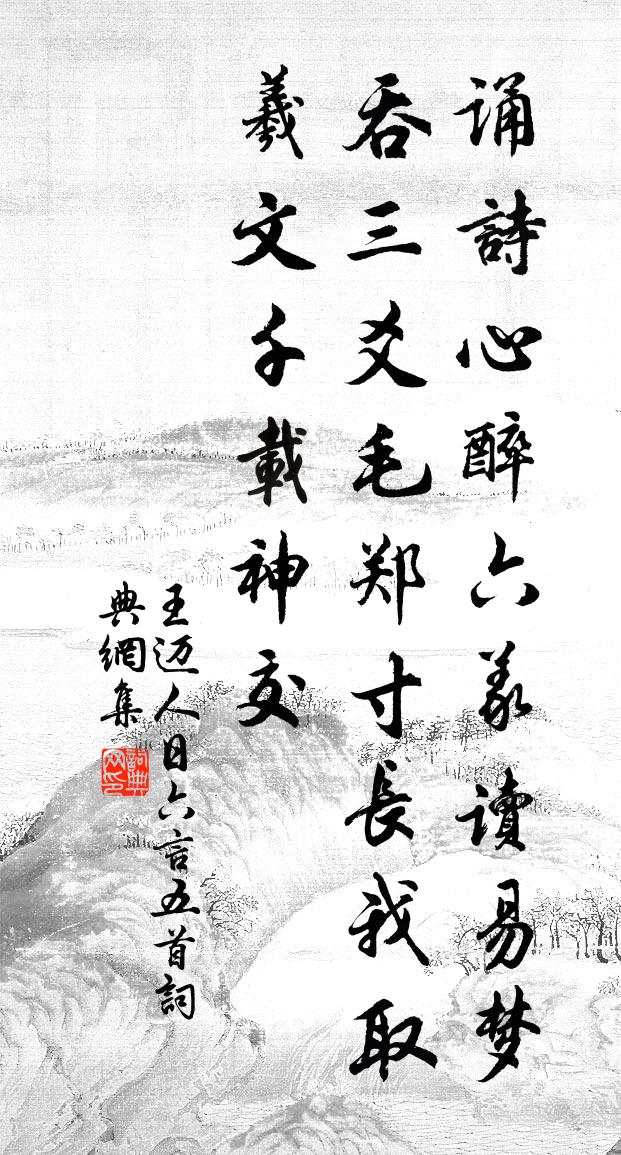 诵詩心醉六义讀易梦
吞三爻毛郑寸長我取
羲文千載神交
王迈人日六言五首詞
典網集
詞典
网印